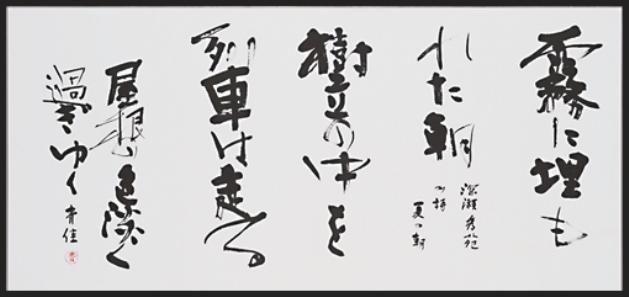 霧に埋も
れた朝
深瀬
の詩
夏の朝
樹立の中を
列車は走る
屋根の色淡く
過ぎゆく
青佳